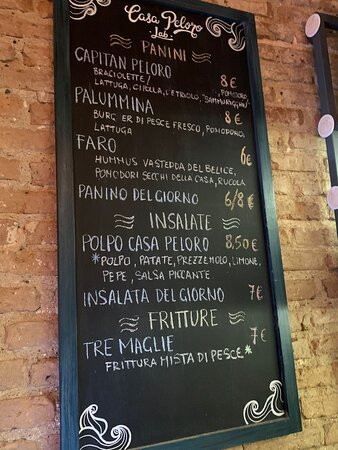 Casa Peloro
Lab.
PANINI
CAPITAN PELORO 8€
BRACIOLETTE/ POMODORO
LATTUGA, CIPOLLA, CETRIOLO, "SAMMURIGGHIU"
PALUMMINA 8€
BURGER DI PESCE FRESCO, POMODORO,
LATTUGA
FARO 6€
HUMMUS VASTEDDA DEL BELICE,
POMODORI SECCHI DELLA CASA, RUCOLA
PANINO DEL GIORNO 6/8€
INSALATE
POLPO CASA PELORO 8,50€
*POLPO, PATATE, PREZZEMOLO, LIMONE,
PEPE, SALSA PICCANTE
INSALATA DEL GIORNO 7€
FRITTURE
TRE MAGLIE 7€
FRITTURA MISTA DI PESCE*